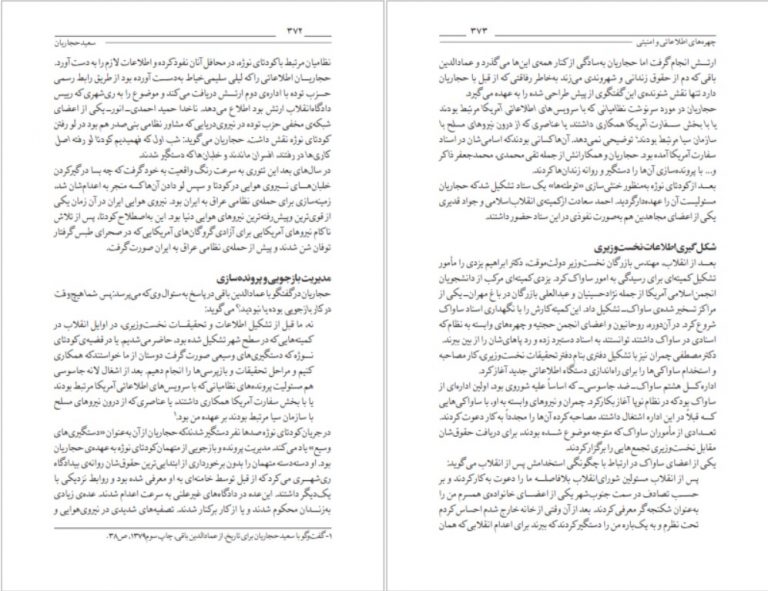 ۳۷۲
سعید حجاریان
نظامیان مرتبط با کودتای نوژه، در محافل آنان نفوذ کرده و اطلاعات لازم را به‌دست آورد.
حجاریان اطلاعاتی را که لیلی سلیمی‌خیاط به‌دست آورده بود از طریق رابط رسمی
حزب توده با اداره‌ی دوم ارتش دریافت می‌کند و موضوع را به ری‌شهری که رییس
دادگاه انقلاب ارتش بود اطلاع می‌دهد. ناخدا حمید احمدی ـ انور ـ یکی از اعضای
شبکه‌ی مخفی حزب توده در نیروی دریایی که مشاور نظامی بنی‌صدر هم بود در لو رفتن
کودتای نوژه نقش داشت. حجاریان می‌گوید: شب اول که فهمیدیم کودتا لو رفته اصل
کاری‌ها در رفتند. افسران ماندند و خلبان‌ها که دستگیر شدند.
در سال‌های بعد این تئوری به سرعت رنگ واقعیت به خود گرفت که چه بسا درگیر کردن
خلبان‌های نیروی هوایی در کودتا و سپس لو دادن آن‌ها که منجر به اعدام‌شان شد،
زمینه‌سازی برای حمله‌ی نظامی عراق به ایران بود. نیروی هوایی ایران در آن زمان یکی
از قوی‌ترین و پیش‌رفته‌ترین نیروهای هوایی دنیا بود. این به‌اصطلاح کودتا، پس از تلاش
ناکام نیروهای آمریکایی برای آزادی گروگان‌های آمریکایی که در صحرای طبس گرفتار
توفان شن شدند و پیش از حمله‌ی نظامی عراق به ایران صورت گرفت.
مدیریت بازجویی و پرونده‌سازی
حجاریان در گفتگو با عمادالدین باقی در پاسخ به سئوال وی که می‌پرسد: پس شما هیچ وقت
در کار بازجویی بوده یا نبودید؟ می‌گوید:
نه. ما قبل از تشکیل اطلاعات و تحقیقات نخست‌وزیری، در اوایل انقلاب در
کمیته‌هایی که در سطح شهر تشکیل شده بود، حاضر می‌شدیم. یا در قضیه‌ی کودتای
نوژه که دستگیری‌های وسیعی صورت گرفت دوستان از ما خواستند که همکاری
کنیم و مراحل تحقیقات و بازپرسی‌ها را انجام دهیم. بعد از اشغال لانه جاسوسی
هم مسئولیت پرونده‌های نظامیانی که با سرویس‌های اطلاعاتی آمریکا مرتبط بودند
یا با بخش سفارت آمریکا همکاری داشتند، یا عناصری که از درون نیروهای مسلح
با سازمان سیا مرتبط بودند بر عهده من بود.۱
در جریان کودتای نوژه صدها نفر دستگیر شدند که حجاریان از آن به‌عنوان «دستگیری‌های
وسیع» یاد می‌کند. مدیریت پرونده و بازجویی از متهمان کودتای نوژه به عهده‌ی حجاریان
بود. او دسته دسته متهمان را بدون برخورداری از ابتدایی‌ترین حقوق‌شان روانه‌ی بیدادگاه
ری‌شهری می‌کرد که از قبل توسط خامنه‌ای به او معرفی شده بود و روابط نزدیکی با
یک‌دیگر داشتند. این‌عده در دادگاه‌های غیرعلنی به سرعت اعدام شدند. عده‌ی زیادی
به‌زندان محکوم شدند و یا از کار برکنار شدند. تصفیه‌های شدیدی در نیروی‌هوایی و
۱- گفت‌وگو با سعید حجاریان برای تاریخ، از عمادالدین باقی، چاپ سوم ۱۳۷۹، ص ۳۸.
۳۷۳
چهره‌های اطلاعاتی و امنیتی
ارتش انجام گرفت اما حجاریان به‌سادگی از کنار همه‌ی این‌ها می‌گذرد و عمادالدین
باقی که دم از حقوق زندانی و شهروندی می‌زند به‌خاطر رفاقتی که از قبل با حجاریان
دارد تنها نقش شنونده‌ی این گفتگوی از پیش طراحی شده را به عهده می‌گیرد.
حجاریان در مورد سرنوشت نظامیانی که با سرویس‌های اطلاعاتی آمریکا مرتبط بودند
یا با بخش سفارت آمریکا همکاری داشتند، یا عناصری که از درون نیروهای مسلح با
سازمان سیا مرتبط بودند؛ توضیحی نمی‌دهد. آن‌ها کسانی بودند که اسامی‌شان در اسناد
سفارت آمریکا آمده بود. حجاریان و همکارانش از جمله تقی محمدی، محمدجعفر ذاکر
و... با پرونده‌سازی آن‌ها را دستگیر و روانه زندان‌ها کردند.
بعد از کودتای نوژه به‌منظور خنثی‌سازی «توطئه‌ها» یک ستاد تشکیل شد که حجاریان
مسئولیت آن را عهده‌دار گردید. احمد سعادت از کمیته‌ی انقلاب اسلامی و جواد قدیری
یکی از اعضای مجاهدین هم به‌صورت نفوذی در این ستاد حضور داشتند.
شکل‌گیری اطلاعات نخست‌وزیری
بعد از انقلاب، مهندس بازرگان نخست‌وزیر دولت موقت، دکتر ابراهیم یزدی را مأمور
تشکیل کمیته‌ای برای رسیدگی به امور ساواک کرد. یزدی کمیته‌ای مرکب از دانشجویان
انجمن اسلامی آمریکا از جمله نژادحسینیان و عبدالعلی بازرگان در باغ مهران ـ یکی از
مراکز تسخیر شده‌ی ساواک ـ تشکیل داد. این کمیته کارش را با نگهداری اسناد ساواک
شروع کرد. در آن دوره، روحانیون و اعضای انجمن حجتیه و چهره‌های وابسته به نظام که
اسنادی در ساواک داشتند توانستند به اسناد دستبرد زده و رد پاهای‌شان را از بین ببرند.
دکتر مصطفی چمران نیز با تشکیل دفتری بنام دفتر تحقیقات نخست‌وزیری، کار مصاحبه
و استخدام ساواکی‌ها را برای راه‌اندازی دستگاه اطلاعاتی جدید آغاز کرد.
اداره کل هشتم ساواک ـ ضد جاسوسی ـ که اساساً علیه شوروی بود، اولین اداره‌ای از
ساواک بود که در نظام نوپا آغاز بکار کرد. چمران و نیروهای وابسته به او، با ساواکی‌هایی
که قبلاً در این اداره اشتغال داشتند، مصاحبه کرده آن‌ها را مجدداً به کار دعوت کردند.
تعدادی از مأموران ساواک که متوجه موضوع شده بودند، برای دریافت حقوق‌شان
مقابل نخست‌وزیری تجمع‌هایی را برگزار کردند.
یکی از اعضای ساواک در ارتباط با چگونگی استخدامش پس از انقلاب می‌گوید:
پس از انقلاب مسئولین شورای انقلاب بلافاصله ما را دعوت به‌کار کردند و بر
حسب تصادف در سمت جنوب‌شهر یکی از اعضای خانواده‌ی همسرم من را
به‌عنوان شکنجه‌گر معرفی کردند. بعد از آن وقتی از خانه خارج شدم احساس کردم
تحت نظرم و به یک‌باره من را دستگیر کردند که ببرند برای اعدام انقلابی که همان